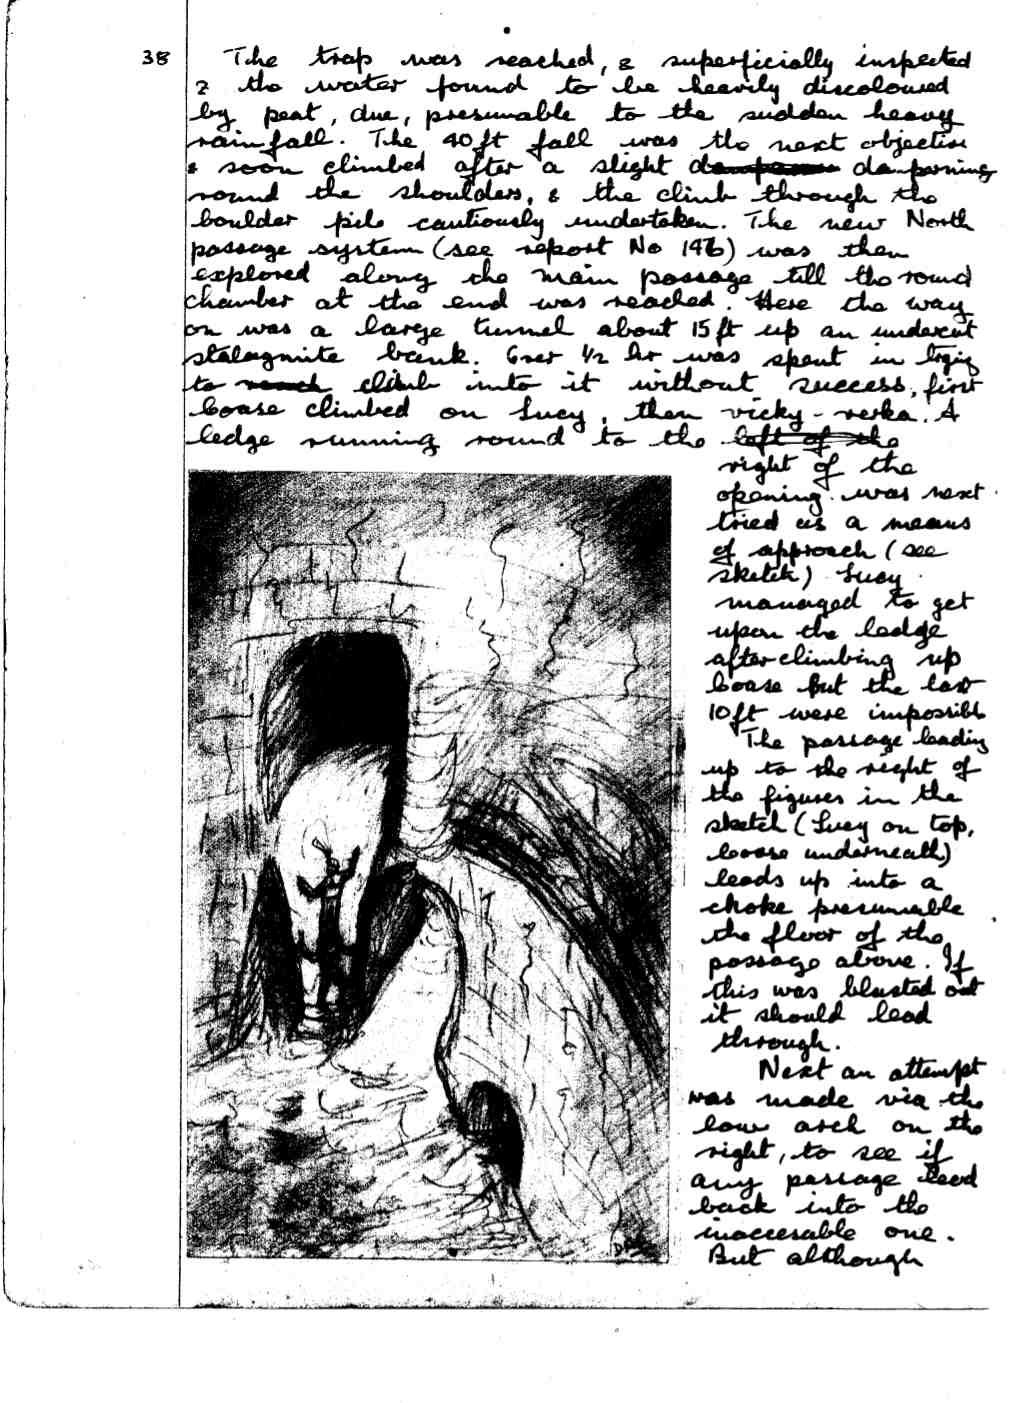 38 The trap was reached, & superficially inspected
& the water found to be heavily discoloured
by peat, due, presumable to the sudden heavy
rainfall. The 40ft fall was the next objective
& soon climbed after a slight dampening
round the shoulders, & the climb through the
boulder pile cautiously undertaken. The new North
passage system (see report No 146) was then
explored along the main passage till the round
chamber at the end was reached. Here the way
on was a large tunnel about 15ft up an undercut
stalagmite bank. Over 1/2 hr was spent in trying
to reach climb into it without success, first
loose climbed on Lucy, then vicky-verka. A
ledge running round to the left of the
right of the
opening was next
tried as a means
of approach (see
sketch) Lucy
managed to get
upon the ledge
after climbing up
loose but the last
10ft were impossible
The passage leading
up to the right of
the figures in the
sketch (Lucy on top,
loose underneath)
leads up into a
choke presumable
the floor of the
passage above. If
this was blasted out
it should lead
through.
Next an attempt
was made via the
low arch on the
right, to see if
any passage lead
back into the
inaccesable one.
But although